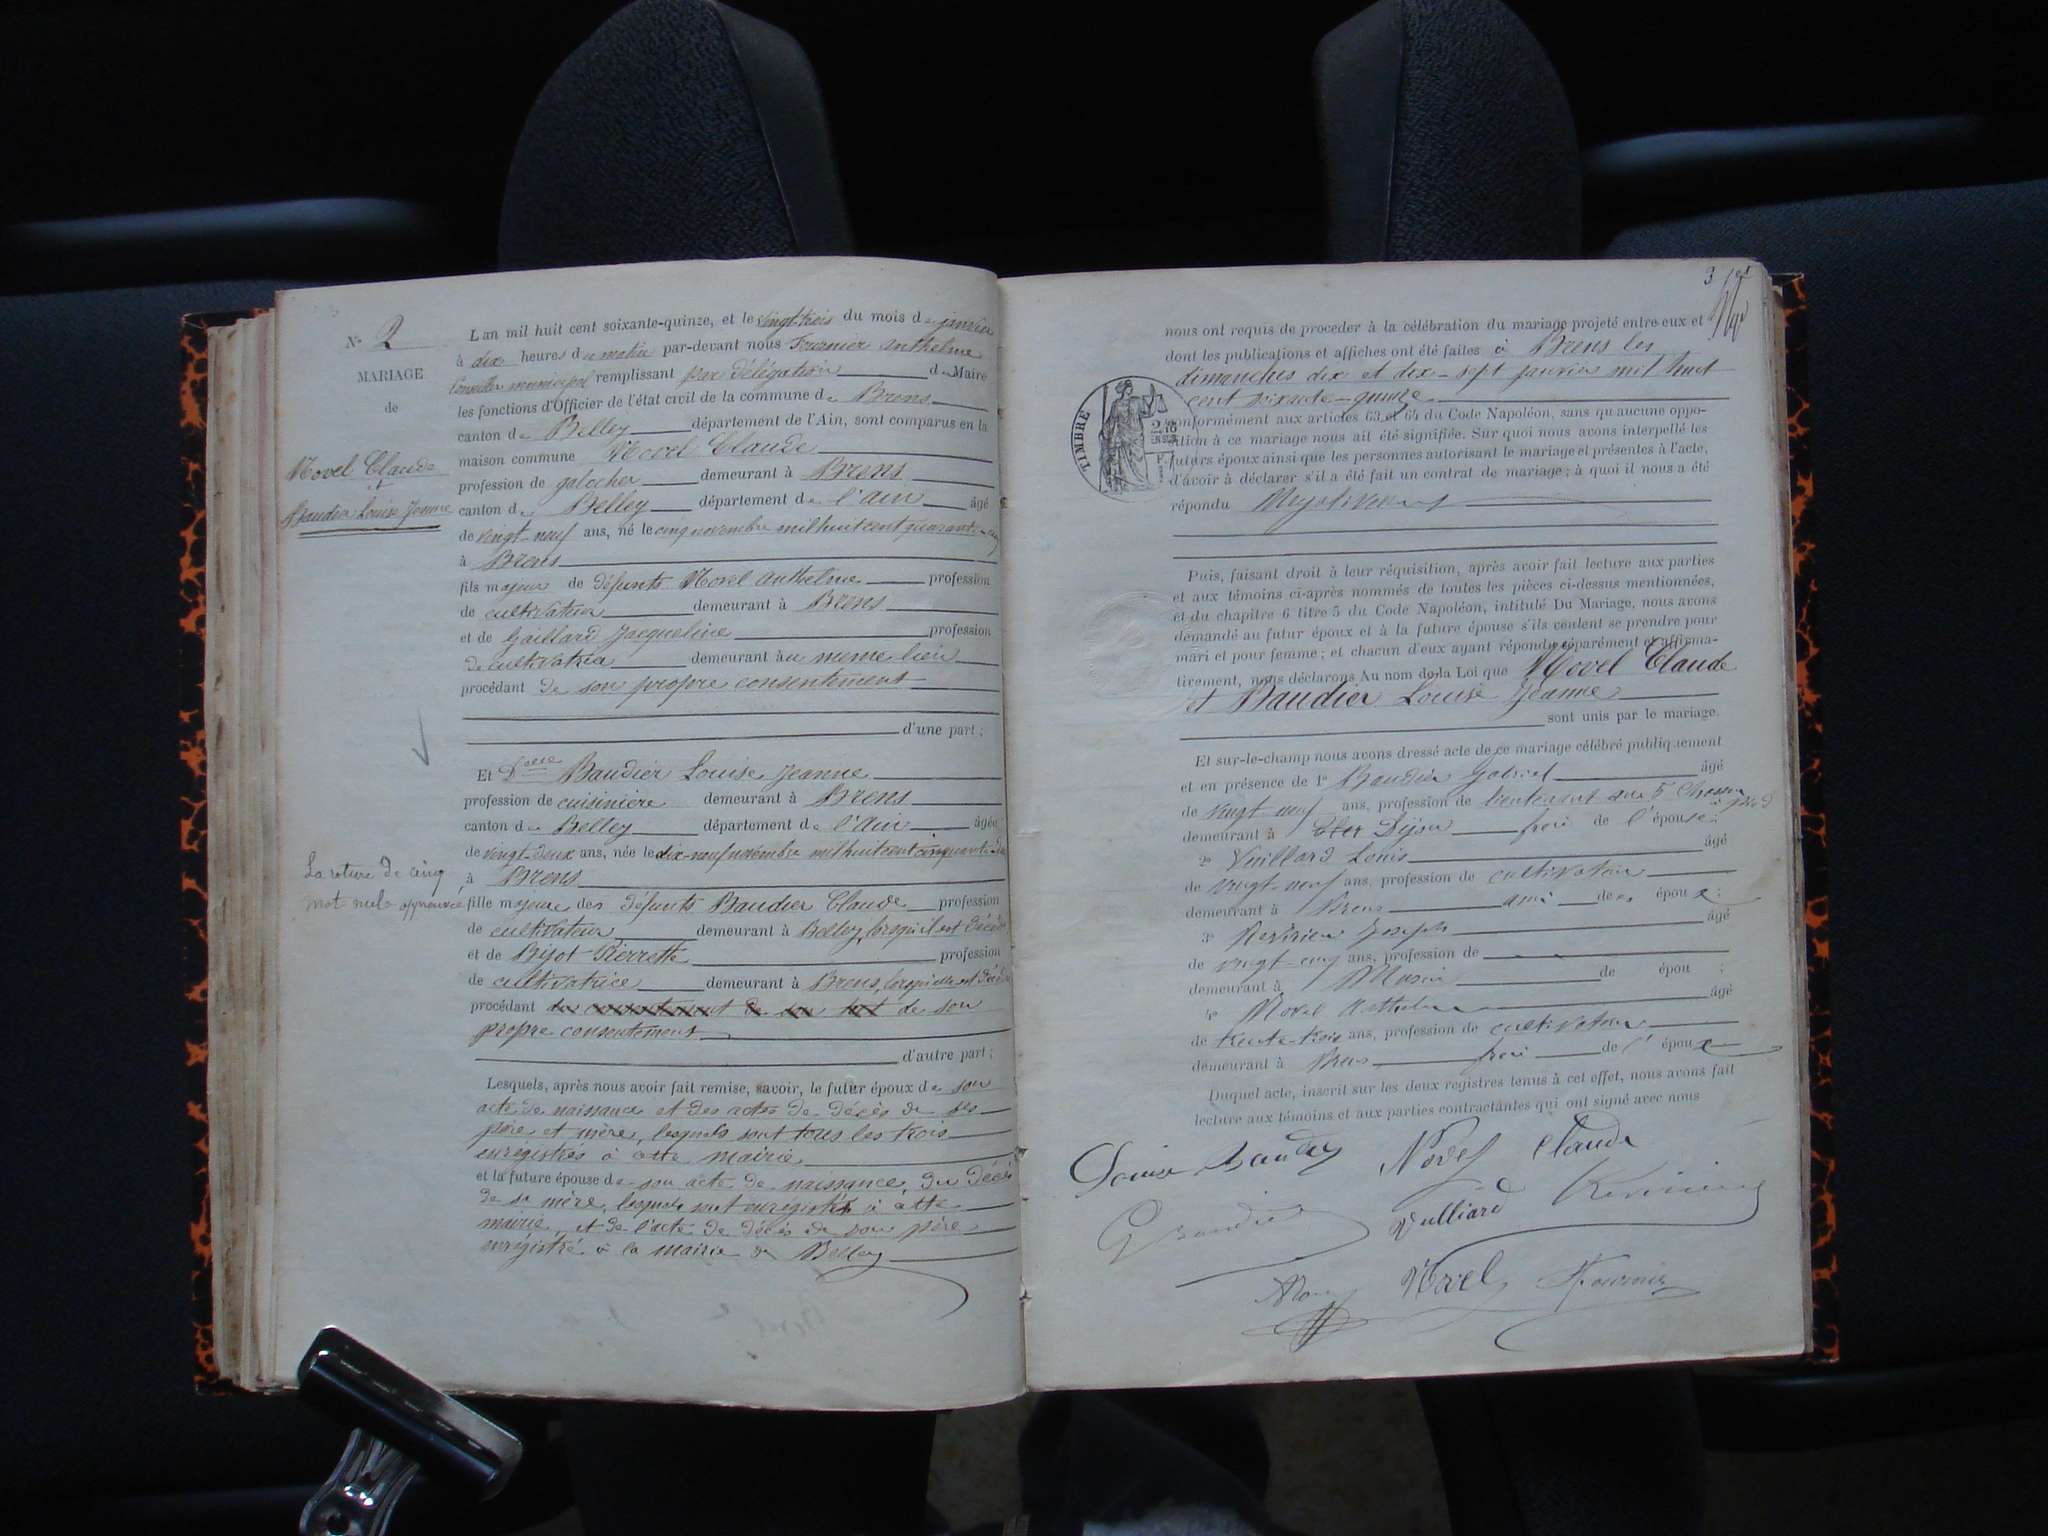 N° 2
MARIAGE
de
Novel Claude
et
Baudier Louise Jeanne
La roture de cinq
mot nuls approuvée
L an mil huit cent soixante-quinze, et le vingt-trois du mois de janvier
à dix heures du matin par-devant nous Fournier Anthelme
Conseiller municipal remplissant par délégation du Maire
les fonctions d'Officier de l'état civil de la commune de Brens
canton de Belley département de l'Ain, sont comparus en la
maison commune Novel Claude
profession de galocher demeurant à Brens
canton de Belley département de l'Ain âgé
de vingt-neuf ans, né le cinq novembre mil huit cent quarante-cinq
à Brens
fils majeur de défunts Novel Anthelme profession
de cultivateur demeurant à Brens
et de Gaillard Jacqueline profession
de cultivatrice demeurant au meme lieu
procédant de son propre consentement
d'une part ;
Et Delle Baudier Louise Jeanne
profession de cuisinière demeurant à Brens
canton de Belley département de l'Ain âgée
de vingt-deux ans, née le dix-neuf novembre mil huit cent cinquante-deux
à Brens
fille majeure des défunts Baudier Claude profession
de cultivateur demeurant à Belley, lorsqu'il est décédé
et de Bijot Pierrette profession
de cultivatrice demeurant à Brens, lorsqu'elle est décédée
procédant du consentement de son de son
propre consentement
d'autre part ;
Lesquels, après nous avoir fait remise, savoir, le futur époux de son
acte de naissance et des actes de décès de ses
père et mère, lesquels sont tous les trois
enregistrés à cette mairie
et la future épouse de son acte de naissance, du décès
de sa mère, lesquels sont enregistrés à cette
mairie, et de l'acte de décès de son père
enregistré à la mairie de Belley
3
nous ont requis de proceder à la célébration du mariage projeté entre eux et
dont les publications et affiches ont été faites à Brens les
dimanches dix et dix-sept janvier mil huit
cent soixante-quinze
conformément aux articles 63 et 64 du Code Napoléon, sans qu aucune oppo-
sition à ce mariage nous ait été signifiée. Sur quoi nous avons interpellé les
futurs époux ainsi que les personnes autorisant le mariage et présentes à l'acte,
d'avoir à déclarer s'il a été fait un contrat de mariage ; à quoi il nous a été
répondu Négativement
TIMBRE
Puis, faisant droit à leur réquisition, après avoir fait lecture aux parties
et aux témoins ci-après nommés de toutes les pièces ci-dessus mentionnées,
et du chapitre 6 titre 5 du Code Napoléon, intitulé Du Mariage, nous avons
demandé au futur époux et à la future épouse s'ils veulent se prendre pour
mari et pour femme ; et chacun d'eux ayant répondu séparément et affirma-
tivement, nous déclarons Au nom de la Loi que Novel Claude
et Baudier Louise Jeanne
sont unis par le mariage.
Et sur-le-champ nous avons dressé acte de ce mariage célébré publiquement
et en présence de 1° Baudier Gabriel âgé
de vingt-neuf ans, profession de lieutenant au 5e Chasseur à pied
demeurant à Dijon frère de l'épouse ;
2° Vuillard Louis âgé
de vingt-neuf ans, profession de cultivateur
demeurant à Brens ami des époux ;
3° Joseph âgé
de vingt-cinq ans, profession de
demeurant à de épou ;
4° Novel Anthelme âgé
de trente-trois ans, profession de cultivateur
demeurant à Brens frère de l'époux
Duquel acte, inscrit sur les deux registres tenus à cet effet, nous avons fait
lecture aux témoins et aux parties contractantes qui ont signé avec nous
Louise Baudier Novel Claude
G Baudier Vulliard
Novel Fournier